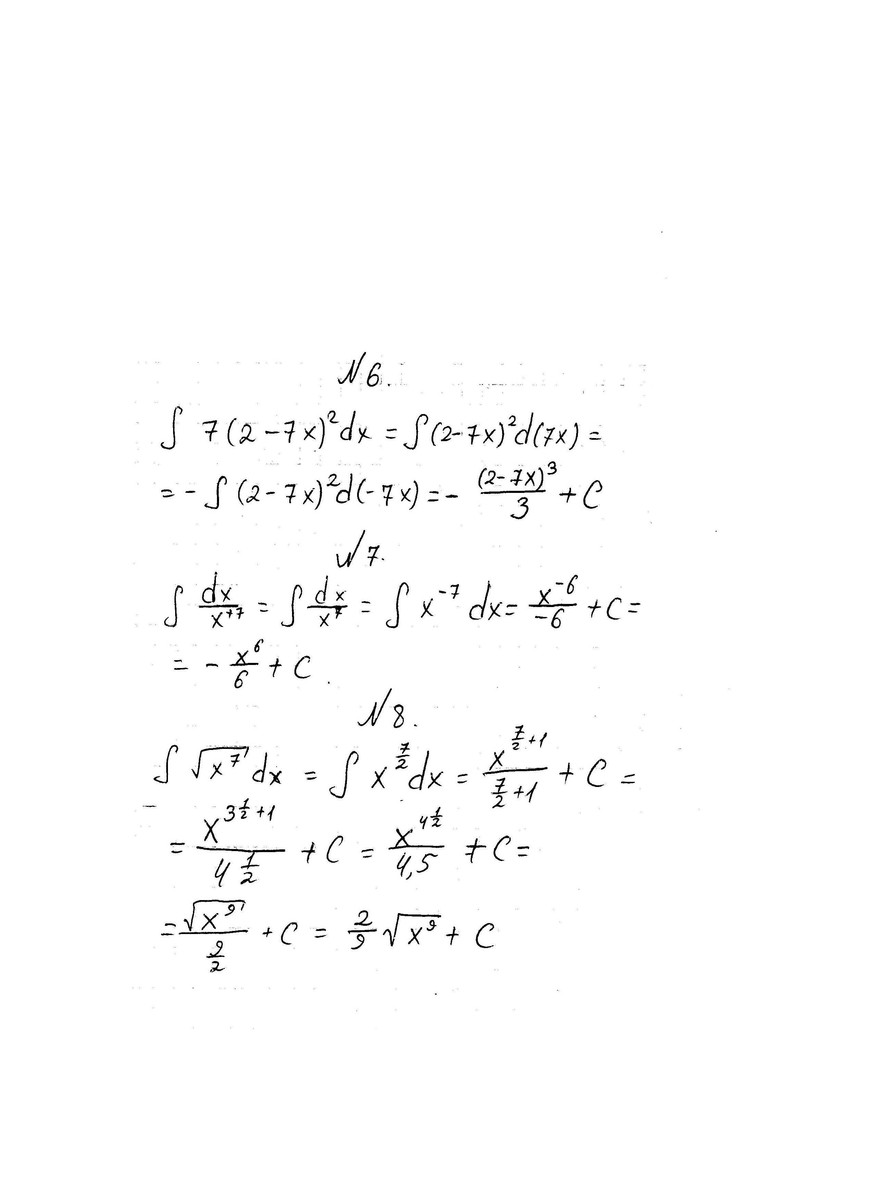 №6.
∫ 7(2-7x)²dx = ∫(2-7x)²d(7x) =
= - ∫ (2-7x)²d(-7x) = - (2-7x)³/3 + C
№7.
∫ dx/x⁺⁷ = ∫ dx/x⁷ = ∫ x⁻⁷ dx = x⁻⁶/-6 + C =
= - x⁶/6 + C.
№8.
∫ √x⁷ dx = ∫ x^(7/2) dx = x^(7/2+1)/(7/2+1) + C =
= x^(3 1/2 +1)/(4 1/2) + C = x^(4 1/2)/4,5 + C =
= √x⁹/(9/2) + C = 2/9 √x⁹ + C